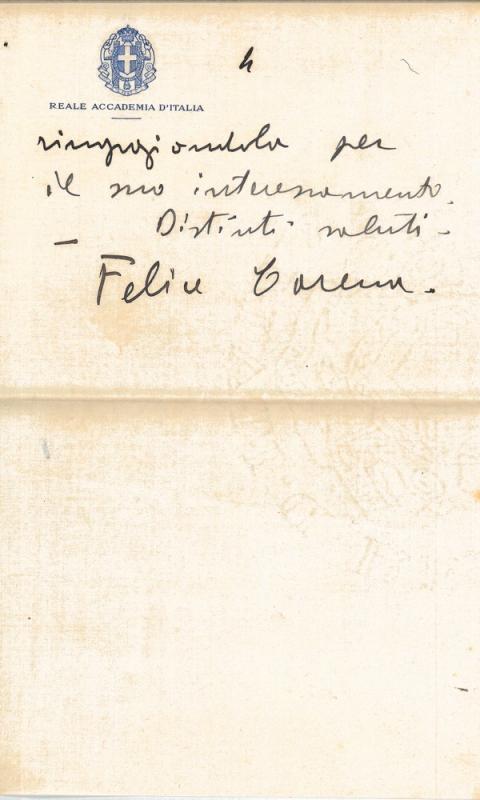 4
REALE ACCADEMIA D'ITALIA
ringraziandola per
il suo interessamento.
Distinti saluti -
Felice Carena.